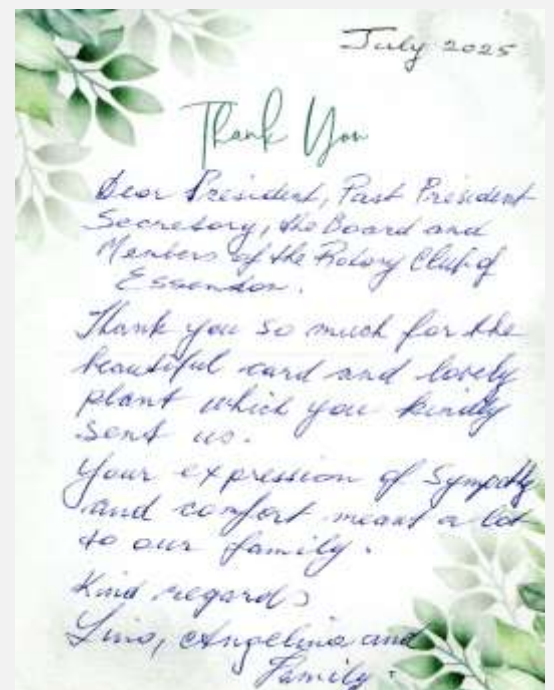 July 2025
Thank You
Dear President, Past President
Secretary, the Board and
Members of the Rotary Club of
Essendon.
Thank you so much for the
beautiful card and lovely
plant which you kindly
sent us.
Your expression of Sympathy
and comfort meant a lot
to our family.
Kind regards
Lino, Angelina and
Family.